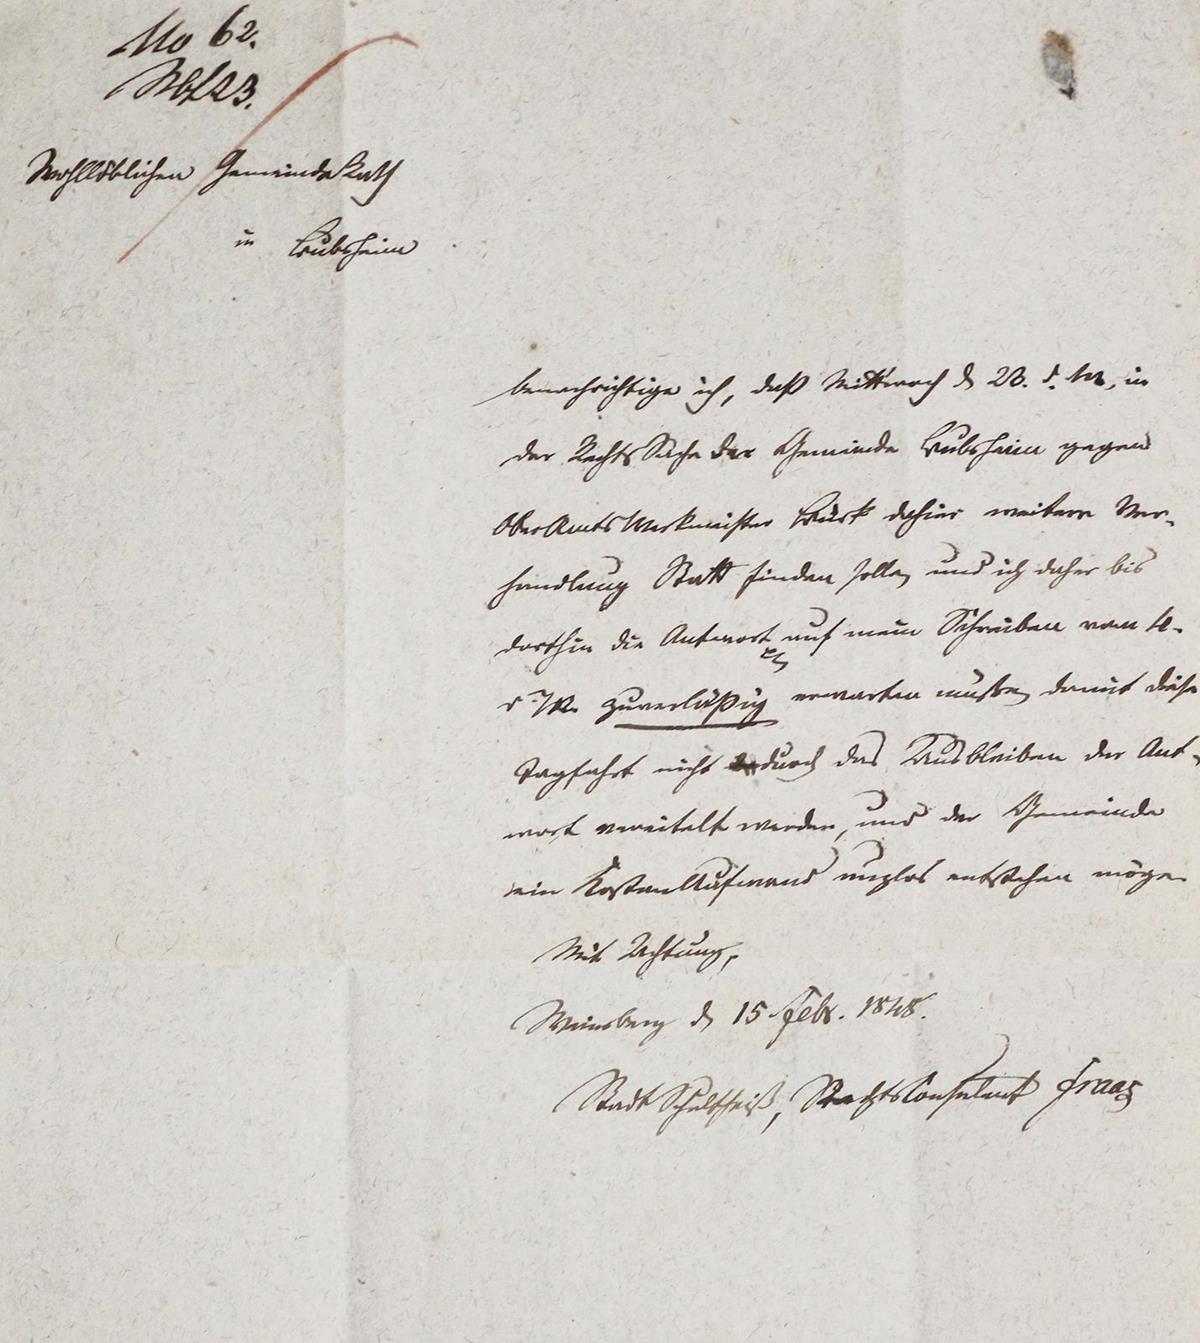 No 62.
Wohllöblichen GemeindeRath
in
benachrichtige ich, daß Mittwoch d. 23. d. M. in
der RechtsSache der Gemeinde gegen
OberAmtsWerkmeister dahier weitere Ver-
handlung Statt finden solle, und ich daher bis
dorthin die Antwort auf mein Schreiben vom 4.
d. M. zuverläßig erwarten müßte, damit diese
Tagfahrt nicht durch das Ausbleiben der Ant-
wort vereitelt werden, und der Gemeinde
ein KostenAufwand nuzlos entstehen möge.
Mit Achtung,
Weinsberg d. 15 Febr. 1848.
StadtSchultheiß, RechtsConsulent Fraas